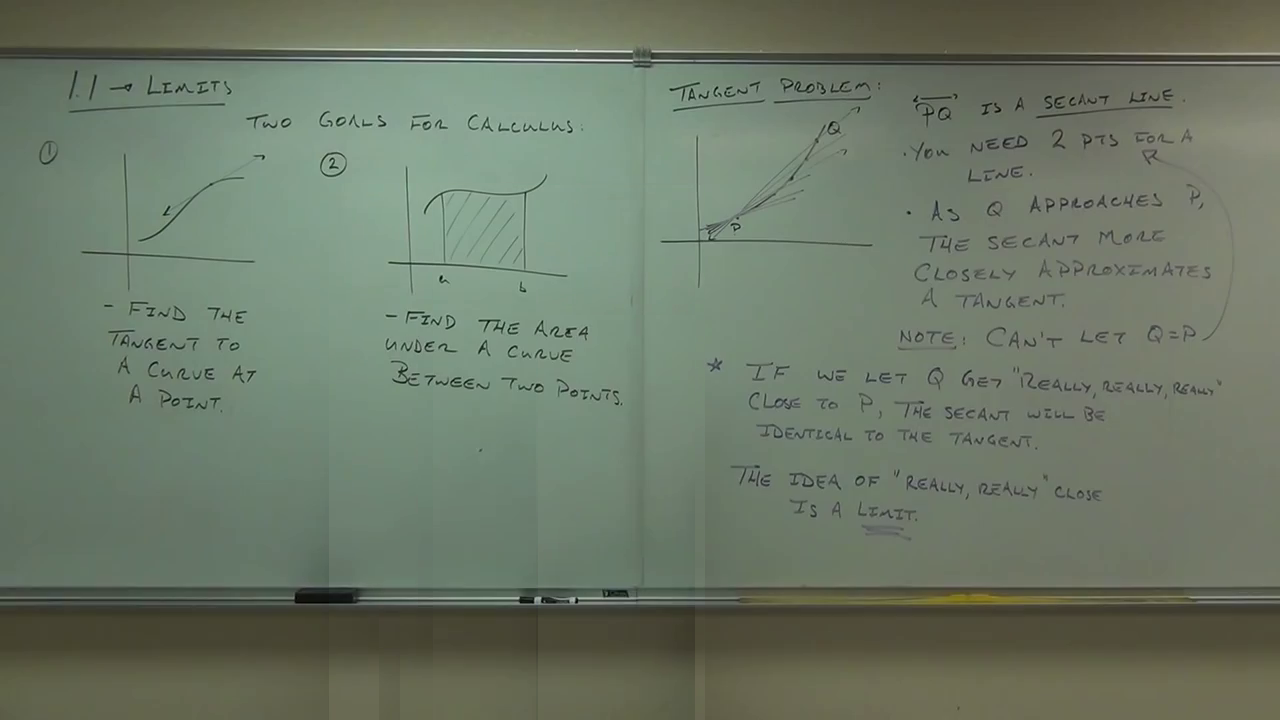 1.1 → LIMITS
TWO GOALS FOR CALCULUS:
①
②
a
b
- FIND THE
TANGENT TO
A CURVE AT
A POINT.
- FIND THE AREA
UNDER A CURVE
BETWEEN TWO POINTS.
TANGENT PROBLEM:
Q
P
PQ IS A SECANT LINE.
· YOU NEED 2 PTS FOR A
LINE.
· AS Q APPROACHES P,
THE SECANT MORE
CLOSELY APPROXIMATES
A TANGENT.
NOTE: CAN'T LET Q=P
* IF WE LET Q GET "REALLY, REALLY, REALLY"
CLOSE TO P, THE SECANT WILL BE
IDENTICAL TO THE TANGENT.
THE IDEA OF "REALLY, REALLY" CLOSE
IS A LIMIT.